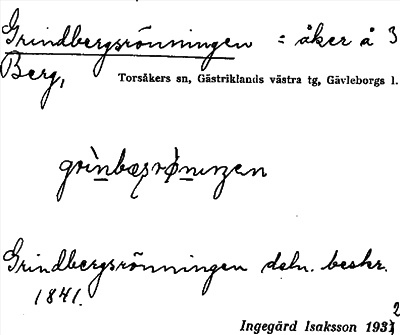 Grindbergsrönningen = åker å 3
Berg,
Torsåkers sn, Gästriklands västra tg, Gävleborgs l.
Grindbergsrönningen deln. beskr.
1841.
Ingegärd Isaksson 1932